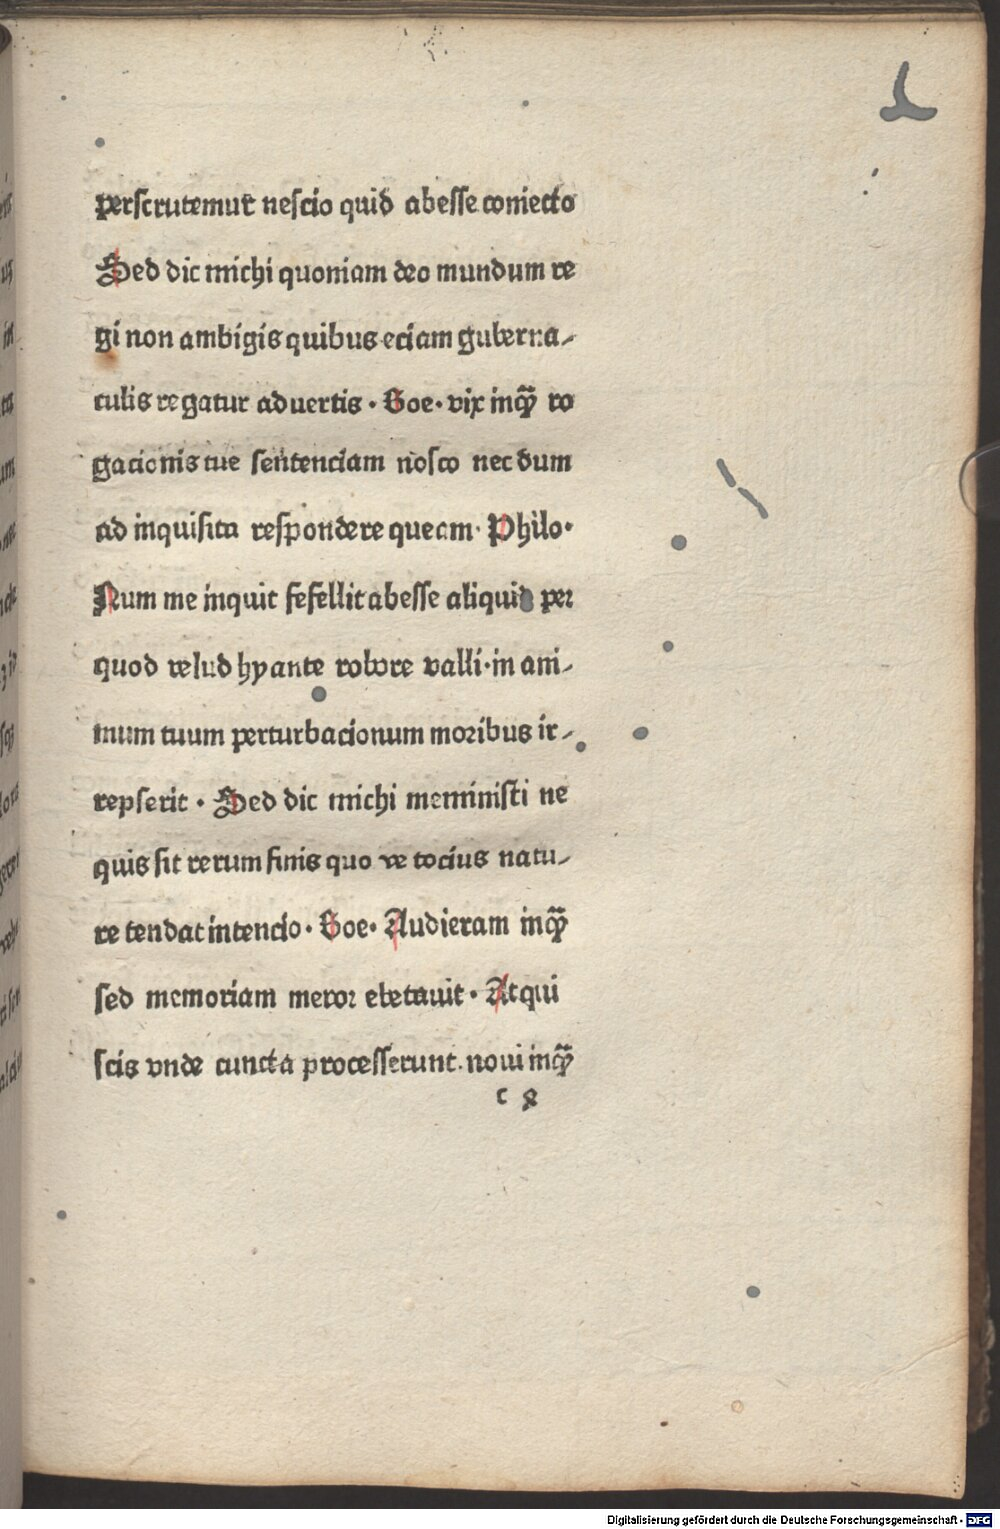 perscrutemur nescio quid abesse coniecto
Sed dic michi quoniam deo mundum re
gi non ambigis quibus eciam guberna-
culis regatur aduertis · Boe · vix inqͣ ro
gacionis tue sentenciam nosco nec dum
ad inquisita respondere queam · Philo ·
Num me inquit fefellit abesse aliquid per
quod velud hyante robore valli · in ani-
mum tuum perturbacionum moribus ir-
repserit · Sed dic michi meministi ne
quis sit rerum finis quo ve tocius natu-
re tendat intencio · Boe · Audieram inqͣ
sed memoriam meror ebetauit · Atqui
scis vnde cuncta processerunt . noui inqͣ
c 8
Digitalisierung gefördert durch die Deutsche Forschungsgemeinschaft - DFG